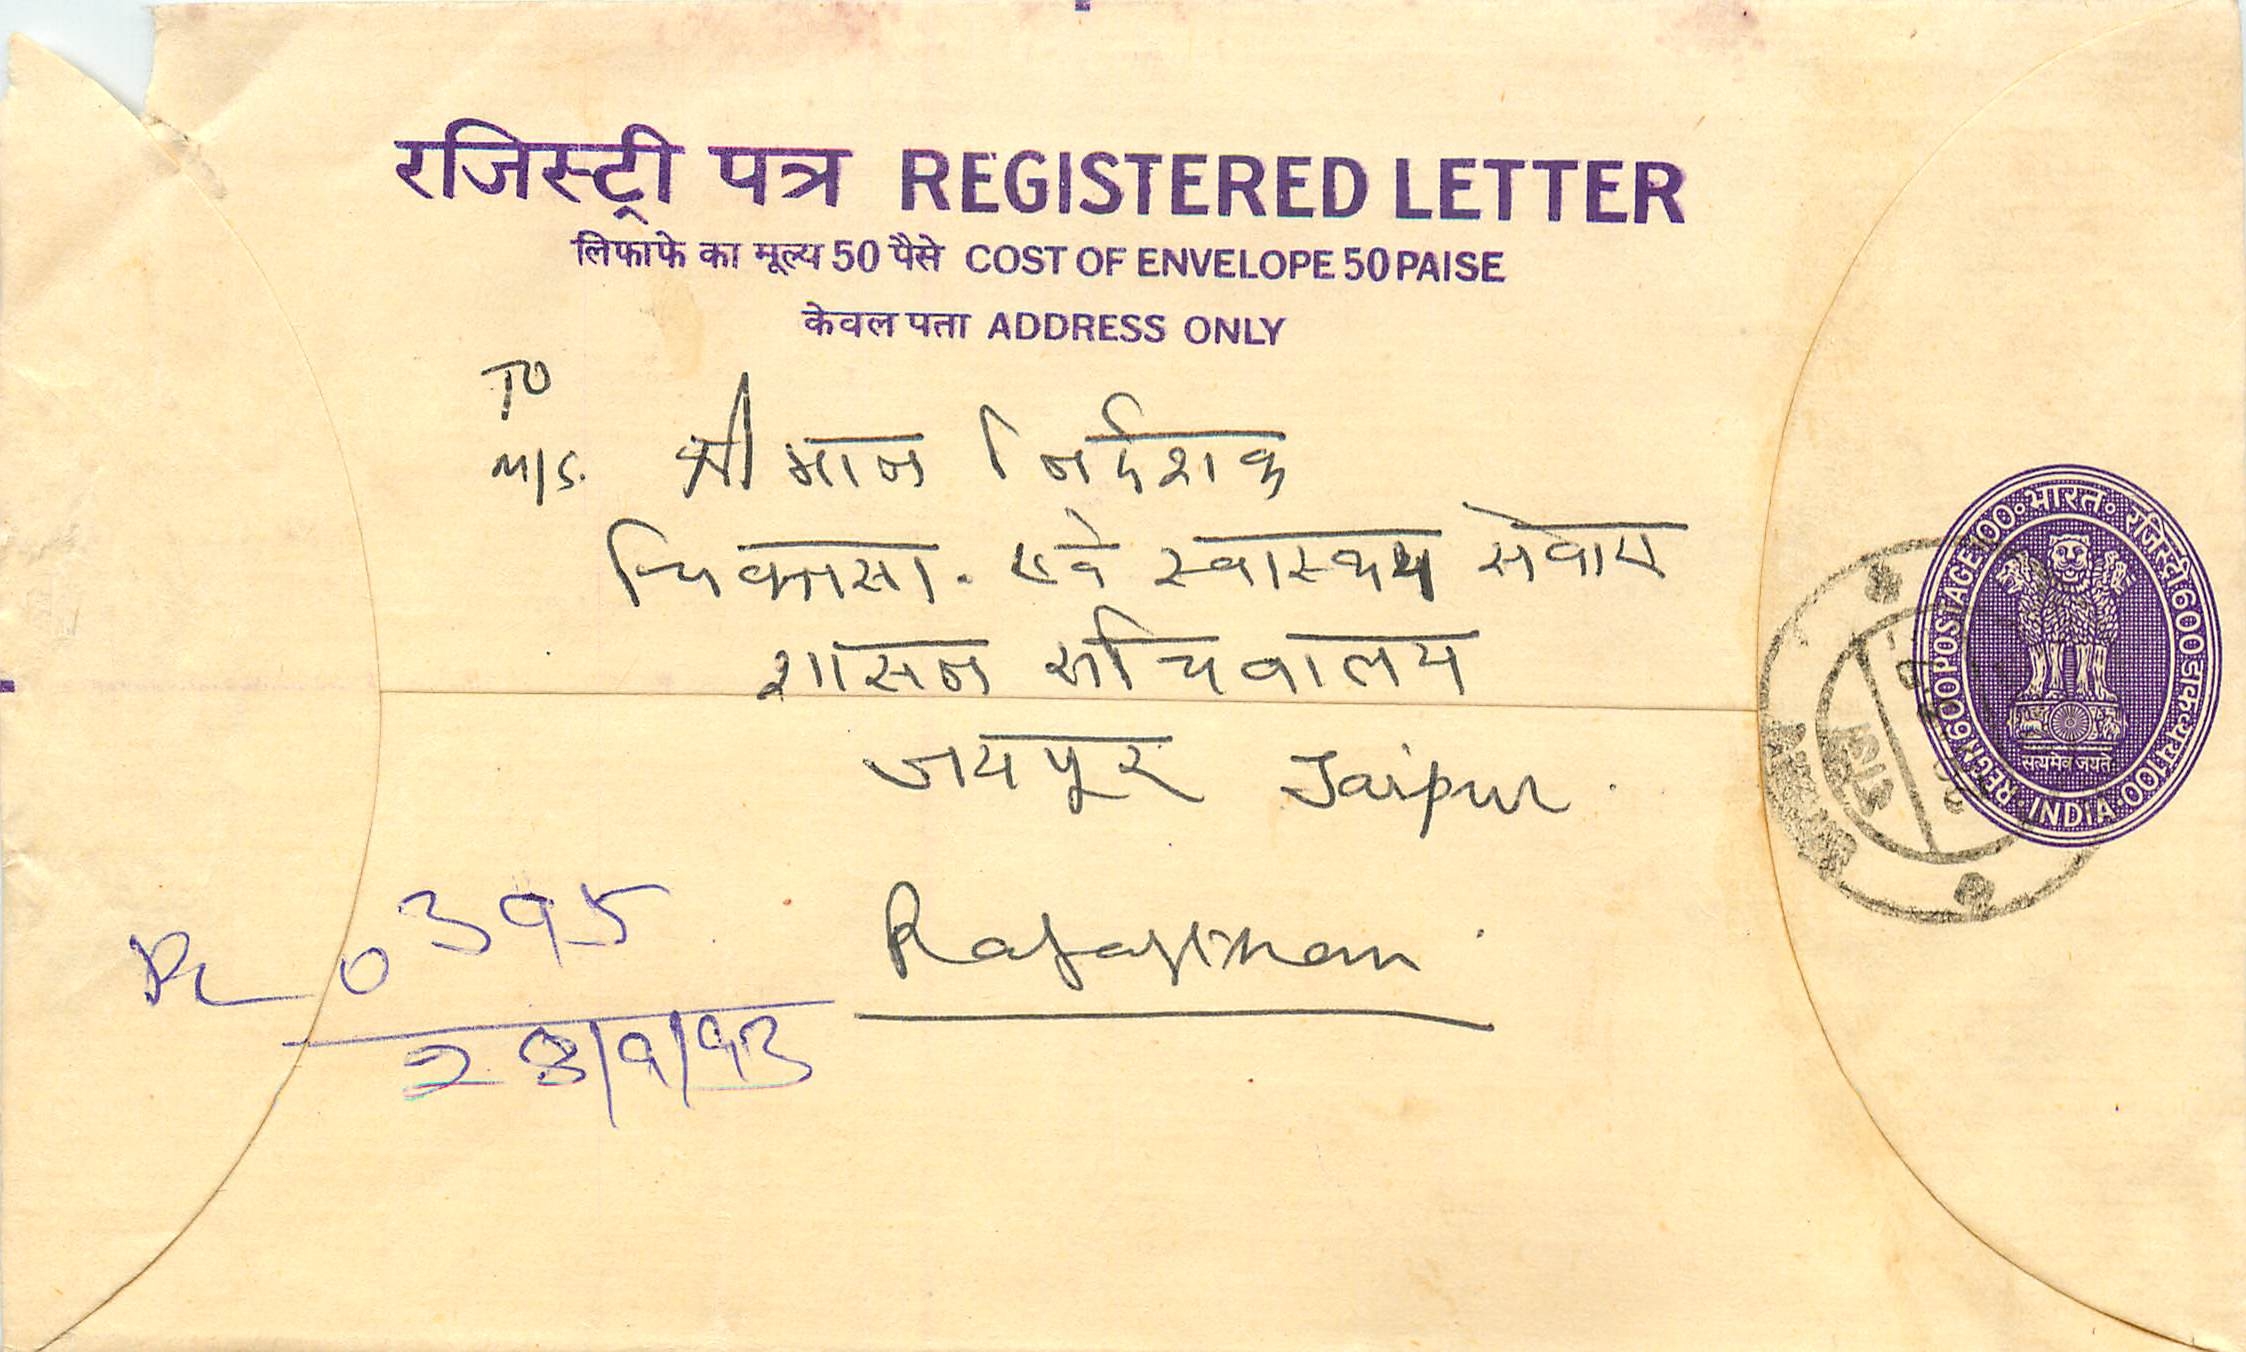 रजिस्ट्री पत्र REGISTERED LETTER
लिफाफे का मूल्य 50 पैसे COST OF ENVELOPE 50 PAISE
केवल पता ADDRESS ONLY
TO
M/S. श्रीमान निर्देशक
एवं स्वास्थय सेवाए
शासन सचिवालय
जयपुर Jaipur.
Rajasthan
R 0395
28/9/93
भारत रजिस्ट्री 600 डाक व्यय 100
REGN 600 POSTAGE 100
सत्यमेव जयते
INDIA